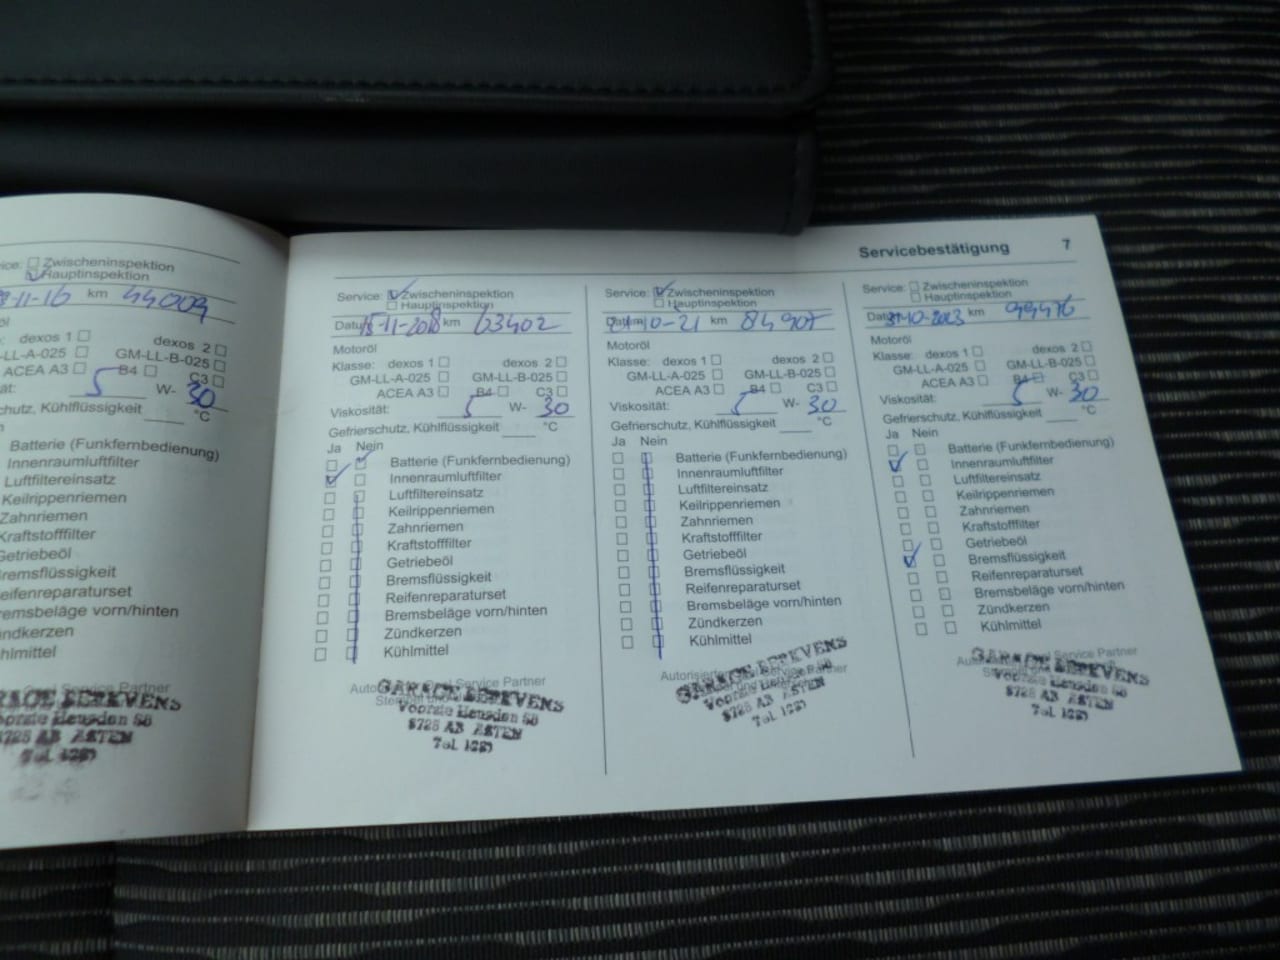 Servicebestätigung 7
Zwischeninspektion
Hauptinspektion
-11-16 km 44009
dexos 1 dexos 2
-LL-A-025 GM-LL-B-025
ACEA A3 B4 C3
5 W- 30
chutz, Kühlflüssigkeit °C
Batterie (Funkfernbedienung)
Innenraumluftfilter
Luftfiltereinsatz
Keilrippenriemen
Zahnriemen
Kraftstofffilter
Getriebeöl
Bremsflüssigkeit
Reifenreparaturset
Bremsbeläge vorn/hinten
ündkerzen
hlmittel
GARAGE BERKVENS
Voorste Heusden 98
5725 AB ASTEN
Tel.
Service: Zwischeninspektion
Hauptinspektion
Datum 15-11-2018 km 63402
Motoröl
Klasse: dexos 1 dexos 2
GM-LL-A-025 GM-LL-B-025
ACEA A3 B4 C3
Viskosität: 5 W- 30
Gefrierschutz, Kühlflüssigkeit °C
Ja Nein
Batterie (Funkfernbedienung)
Innenraumluftfilter
Luftfiltereinsatz
Keilrippenriemen
Zahnriemen
Kraftstofffilter
Getriebeöl
Bremsflüssigkeit
Reifenreparaturset
Bremsbeläge vorn/hinten
Zündkerzen
Kühlmittel
Service Partner
GARAGE BERKVENS
Voorste Heusden 98
5725 AB ASTEN
Tel.
Service: Zwischeninspektion
Hauptinspektion
Datum 10-21 km 84907
Motoröl
Klasse: dexos 1 dexos 2
GM-LL-A-025 GM-LL-B-025
ACEA A3 B4 C3
Viskosität: 5 W- 30
Gefrierschutz, Kühlflüssigkeit °C
Ja Nein
Batterie (Funkfernbedienung)
Innenraumluftfilter
Luftfiltereinsatz
Keilrippenriemen
Zahnriemen
Kraftstofffilter
Getriebeöl
Bremsflüssigkeit
Reifenreparaturset
Bremsbeläge vorn/hinten
Zündkerzen
Kühlmittel
Service Partner
GARAGE BERKVENS
Voorste Heusden 98
5725 AB ASTEN
Tel.
Service: Zwischeninspektion
Hauptinspektion
Datum 31-10-2023 km 99476
Motoröl
Klasse: dexos 1 dexos 2
GM-LL-A-025 GM-LL-B-025
ACEA A3 B4 C3
Viskosität: 5 W- 30
Gefrierschutz, Kühlflüssigkeit °C
Ja Nein
Batterie (Funkfernbedienung)
Innenraumluftfilter
Luftfiltereinsatz
Keilrippenriemen
Zahnriemen
Kraftstofffilter
Getriebeöl
Bremsflüssigkeit
Reifenreparaturset
Bremsbeläge vorn/hinten
Zündkerzen
Kühlmittel
Service Partner
GARAGE BERKVENS
Voorste Heusden 98
5725 AB ASTEN
Tel.